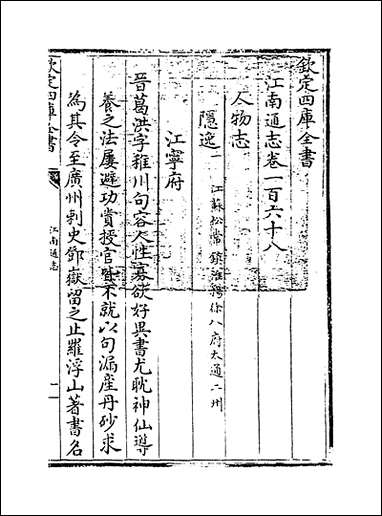 欽定四庫全書
江南通志卷一百六十八
人物志
隱逸一 江蘇松常鎮淮揚徐八府太通二州
江寧府
晉葛洪字稚川句容人性寡欲好異書尤耽神仙導
養之法屢避功賞授官皆不就以句漏産丹砂求
為其令至廣州刺史鄧嶽留之止羅浮山著書名
欽定四庫全書
江南通志
一